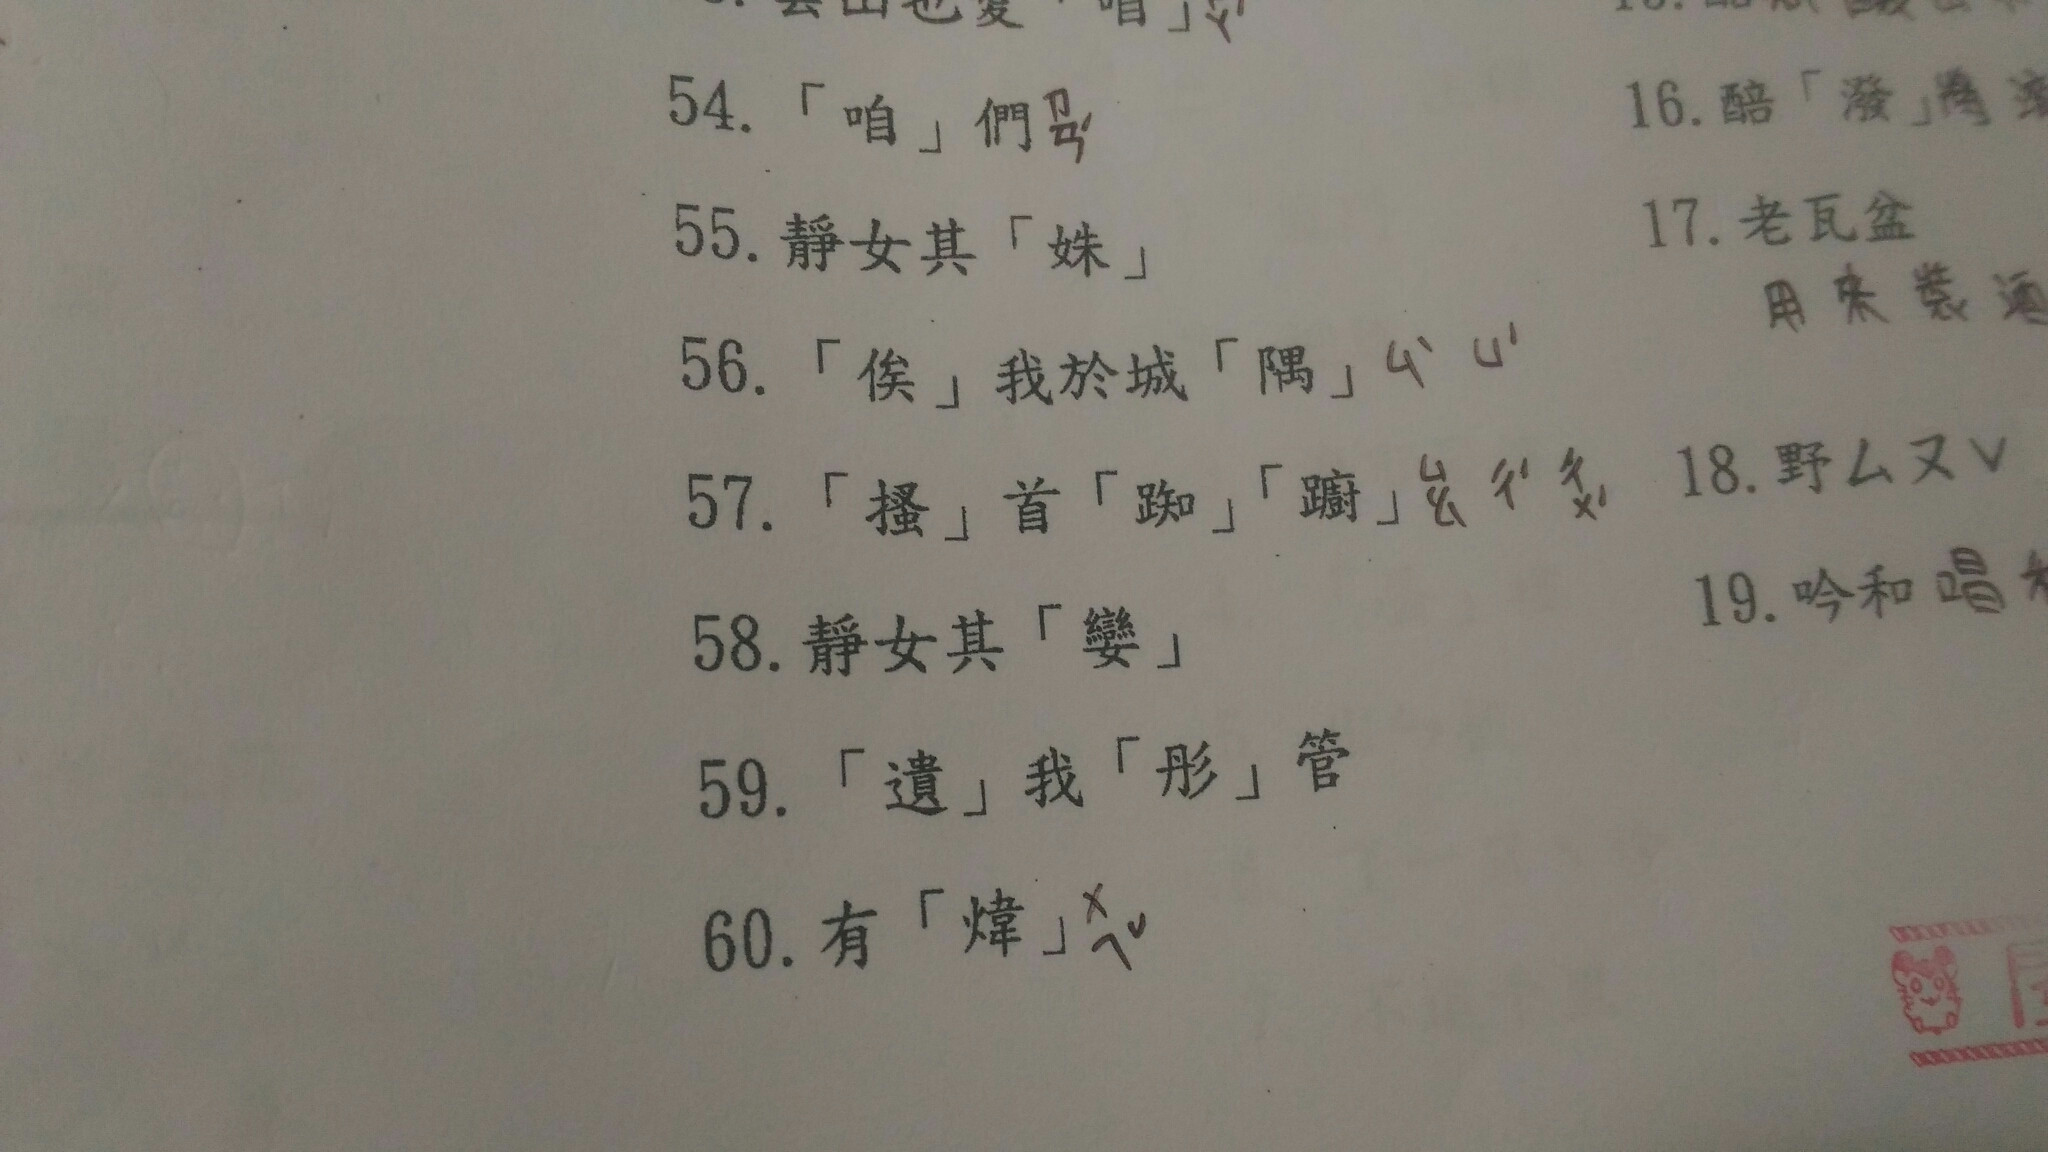 雲山也愛「咱」
54.「咱」們ㄗㄢˊ
55.靜女其「姝」
56.「俟」我於城「隅」ㄙˋ ㄩˊ
57.「搔」首「踟」「躕」ㄙㄠ ㄔˊ ㄔㄨˊ
58.靜女其「孌」
59.「遺」我「彤」管
60.有「煒」ㄨㄟˇ
16.醅「潑」
17.老瓦盆
用來裝酒
18.野ㄙㄡˇ
19.吟和 唱